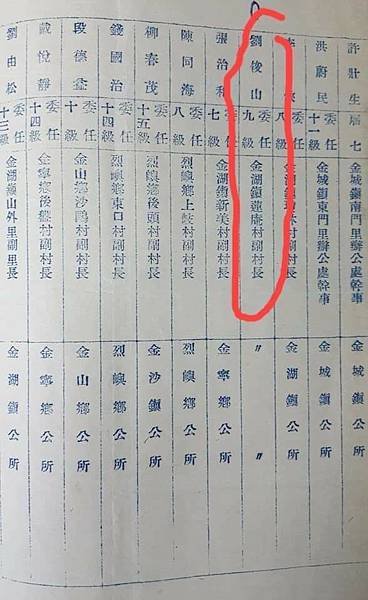 許壯生 雇七 金城鎮南門里辦公處幹事 金城鎮公所
洪蔚民 委任十一級 金城鎮東門里辦公處幹事 金城鎮公所
委任八級 金湖鎮 村副村長 金湖鎮公所
劉俊山 委任九級 金湖鎮蓮庵村副村長 〃 〃
張治和 委任七級 金湖鎮新美村副村長 金寧鄉公所
陳同海 委任八級 烈嶼鄉上岐村副村長 烈嶼鄉公所
柳春茂 委任十五級 烈嶼鄉後頭村副村長 金沙鎮公所
錢國治 委任十四級 烈嶼鄉東口村副村長 烈嶼鄉公所
段德 委任十級 金山鄉沙 村副村長 金山鄉公所
戴悅靜 委任十四級 金寧鄉後 村副村長 金寧鄉公所
劉由松 委任十三級 金湖鎮山外里副里長 金湖鎮公所